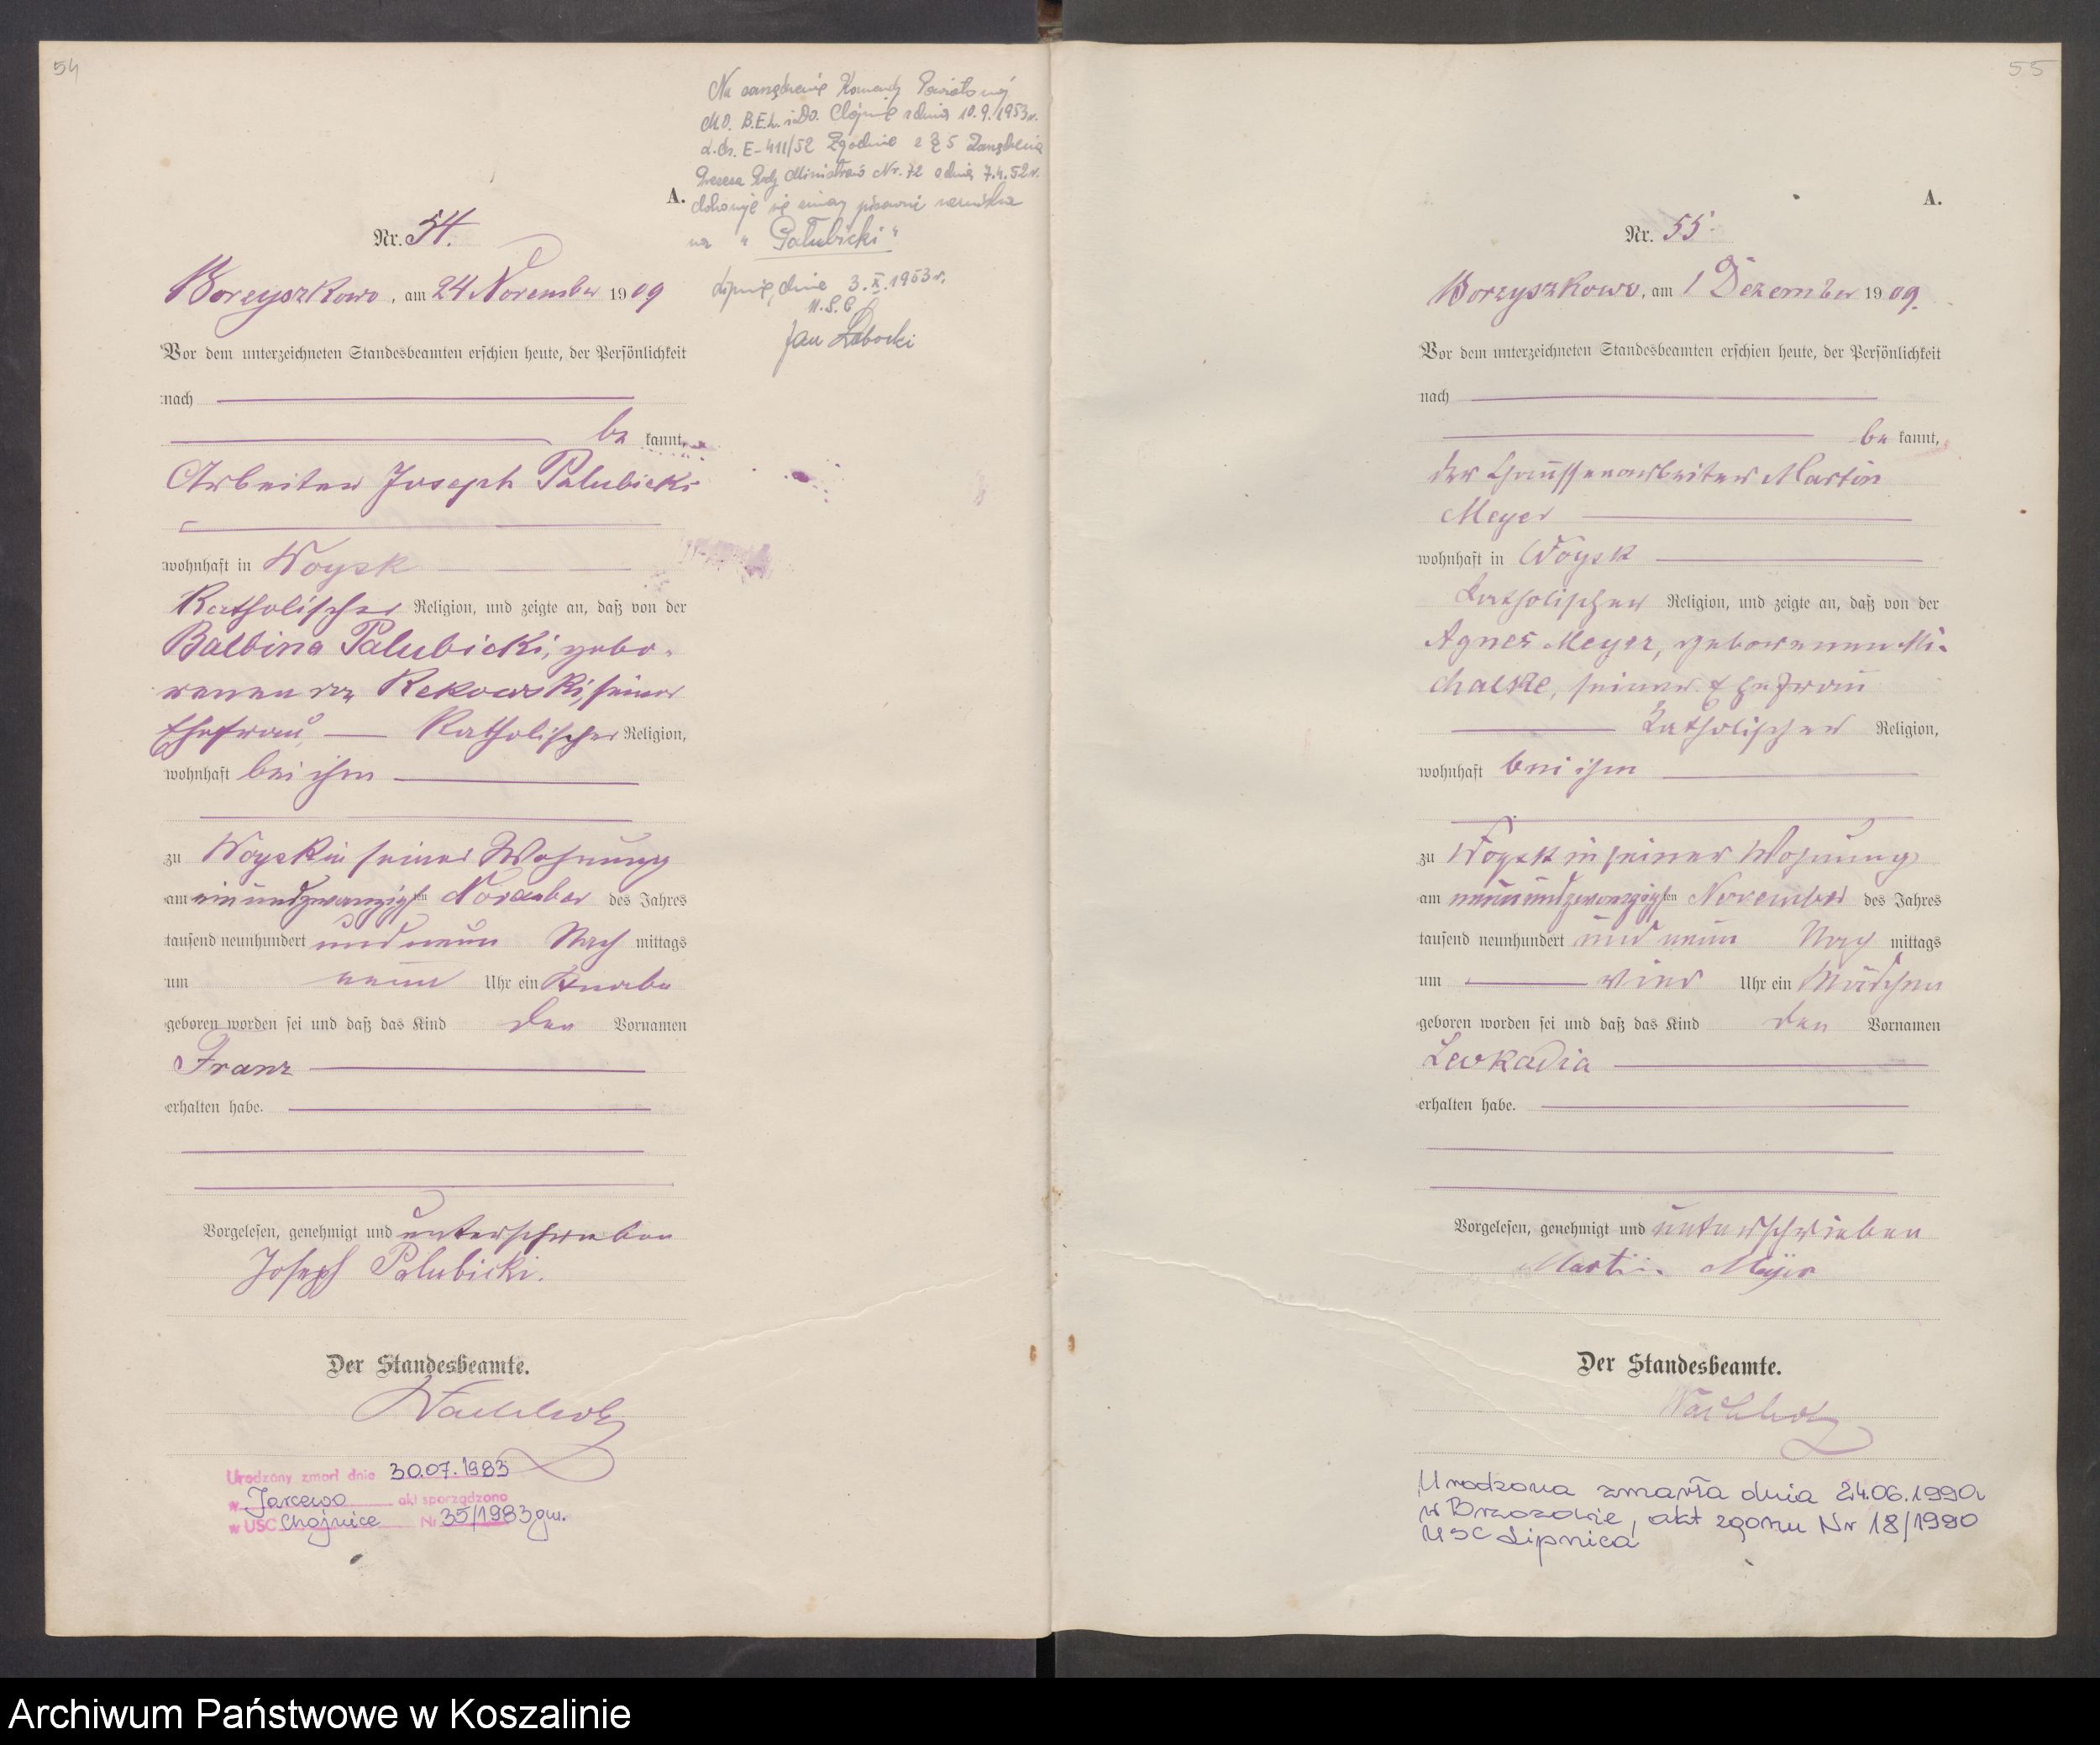 54
A.
Nr. 54.
Borzyszkowo, am 24 November 1909
Vor dem unterzeichneten Standesbeamten erschien heute, der Persönlichkeit
nach
be kannt,
Arbeiter Joseph Palubicki
wohnhaft in Woysk
Katholischer Religion, und zeigte an, daß von der
Balbina Palubicki, gebo-
renen von Rekowski, seiner
Ehefrau Katholischer Religion,
wohnhaft bei ihm
zu Woysk in seiner Wohnung
am einundzwanzigsten November des Jahres
tausend neunhundert und neun Nach mittags
um neun Uhr ein Knabe
geboren worden sei und daß das Kind den Vornamen
Franz
erhalten habe.
Vorgelesen, genehmigt und unterschrieben
Joseph Palubicki.
Der Standesbeamte.
Urodzony zmarł dnia 30.07.1983
w Jarcewo akt sporządzono
w USC Chojnice Nr 35/1983 gm.
Na zarządzenie Komendy Powiatowej
M.O. B.E.L. i D.O. z dnia 10.9.1953r.
E-411/52 Zgodnie z § 5 Zarządzenia
Prezesa Rady Ministrów Nr. 72 z dnia 7.4.52r.
dokonuje się zmiany pisowni nazwiska
na "Pałubicki"
dnia 3.X.1953r.
U.S.C
Jan
55
A.
Nr. 55.
Borzyszkowo, am 1 Dezember 1909.
Vor dem unterzeichneten Standesbeamten erschien heute, der Persönlichkeit
nach
be kannt,
der Chausseearbeiter Martin
Meyer
wohnhaft in Woysk
katholischer Religion, und zeigte an, daß von der
Agnes Meyer, geborenen Mi-
chalke, seiner Ehefrau
katholischer Religion,
wohnhaft bei ihm
zu Woysk in seiner Wohnung
am neunundzwanzigsten November des Jahres
tausend neunhundert und neun Nach mittags
um vier Uhr ein Mädchen
geboren worden sei und daß das Kind den Vornamen
Leokadia
erhalten habe.
Vorgelesen, genehmigt und unterschrieben
Martin Meyer
Der Standesbeamte.
Urodzona zmarła dnia 24.06.1990r
w Brzozowie, akt zgonu Nr 18/1990
USC Lipnica
Archiwum Państwowe w Koszalinie